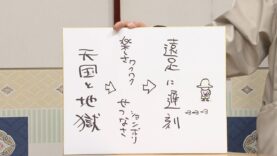 遠足に遅刻
楽しさワクワク
せつなさションボリ
天国と地獄